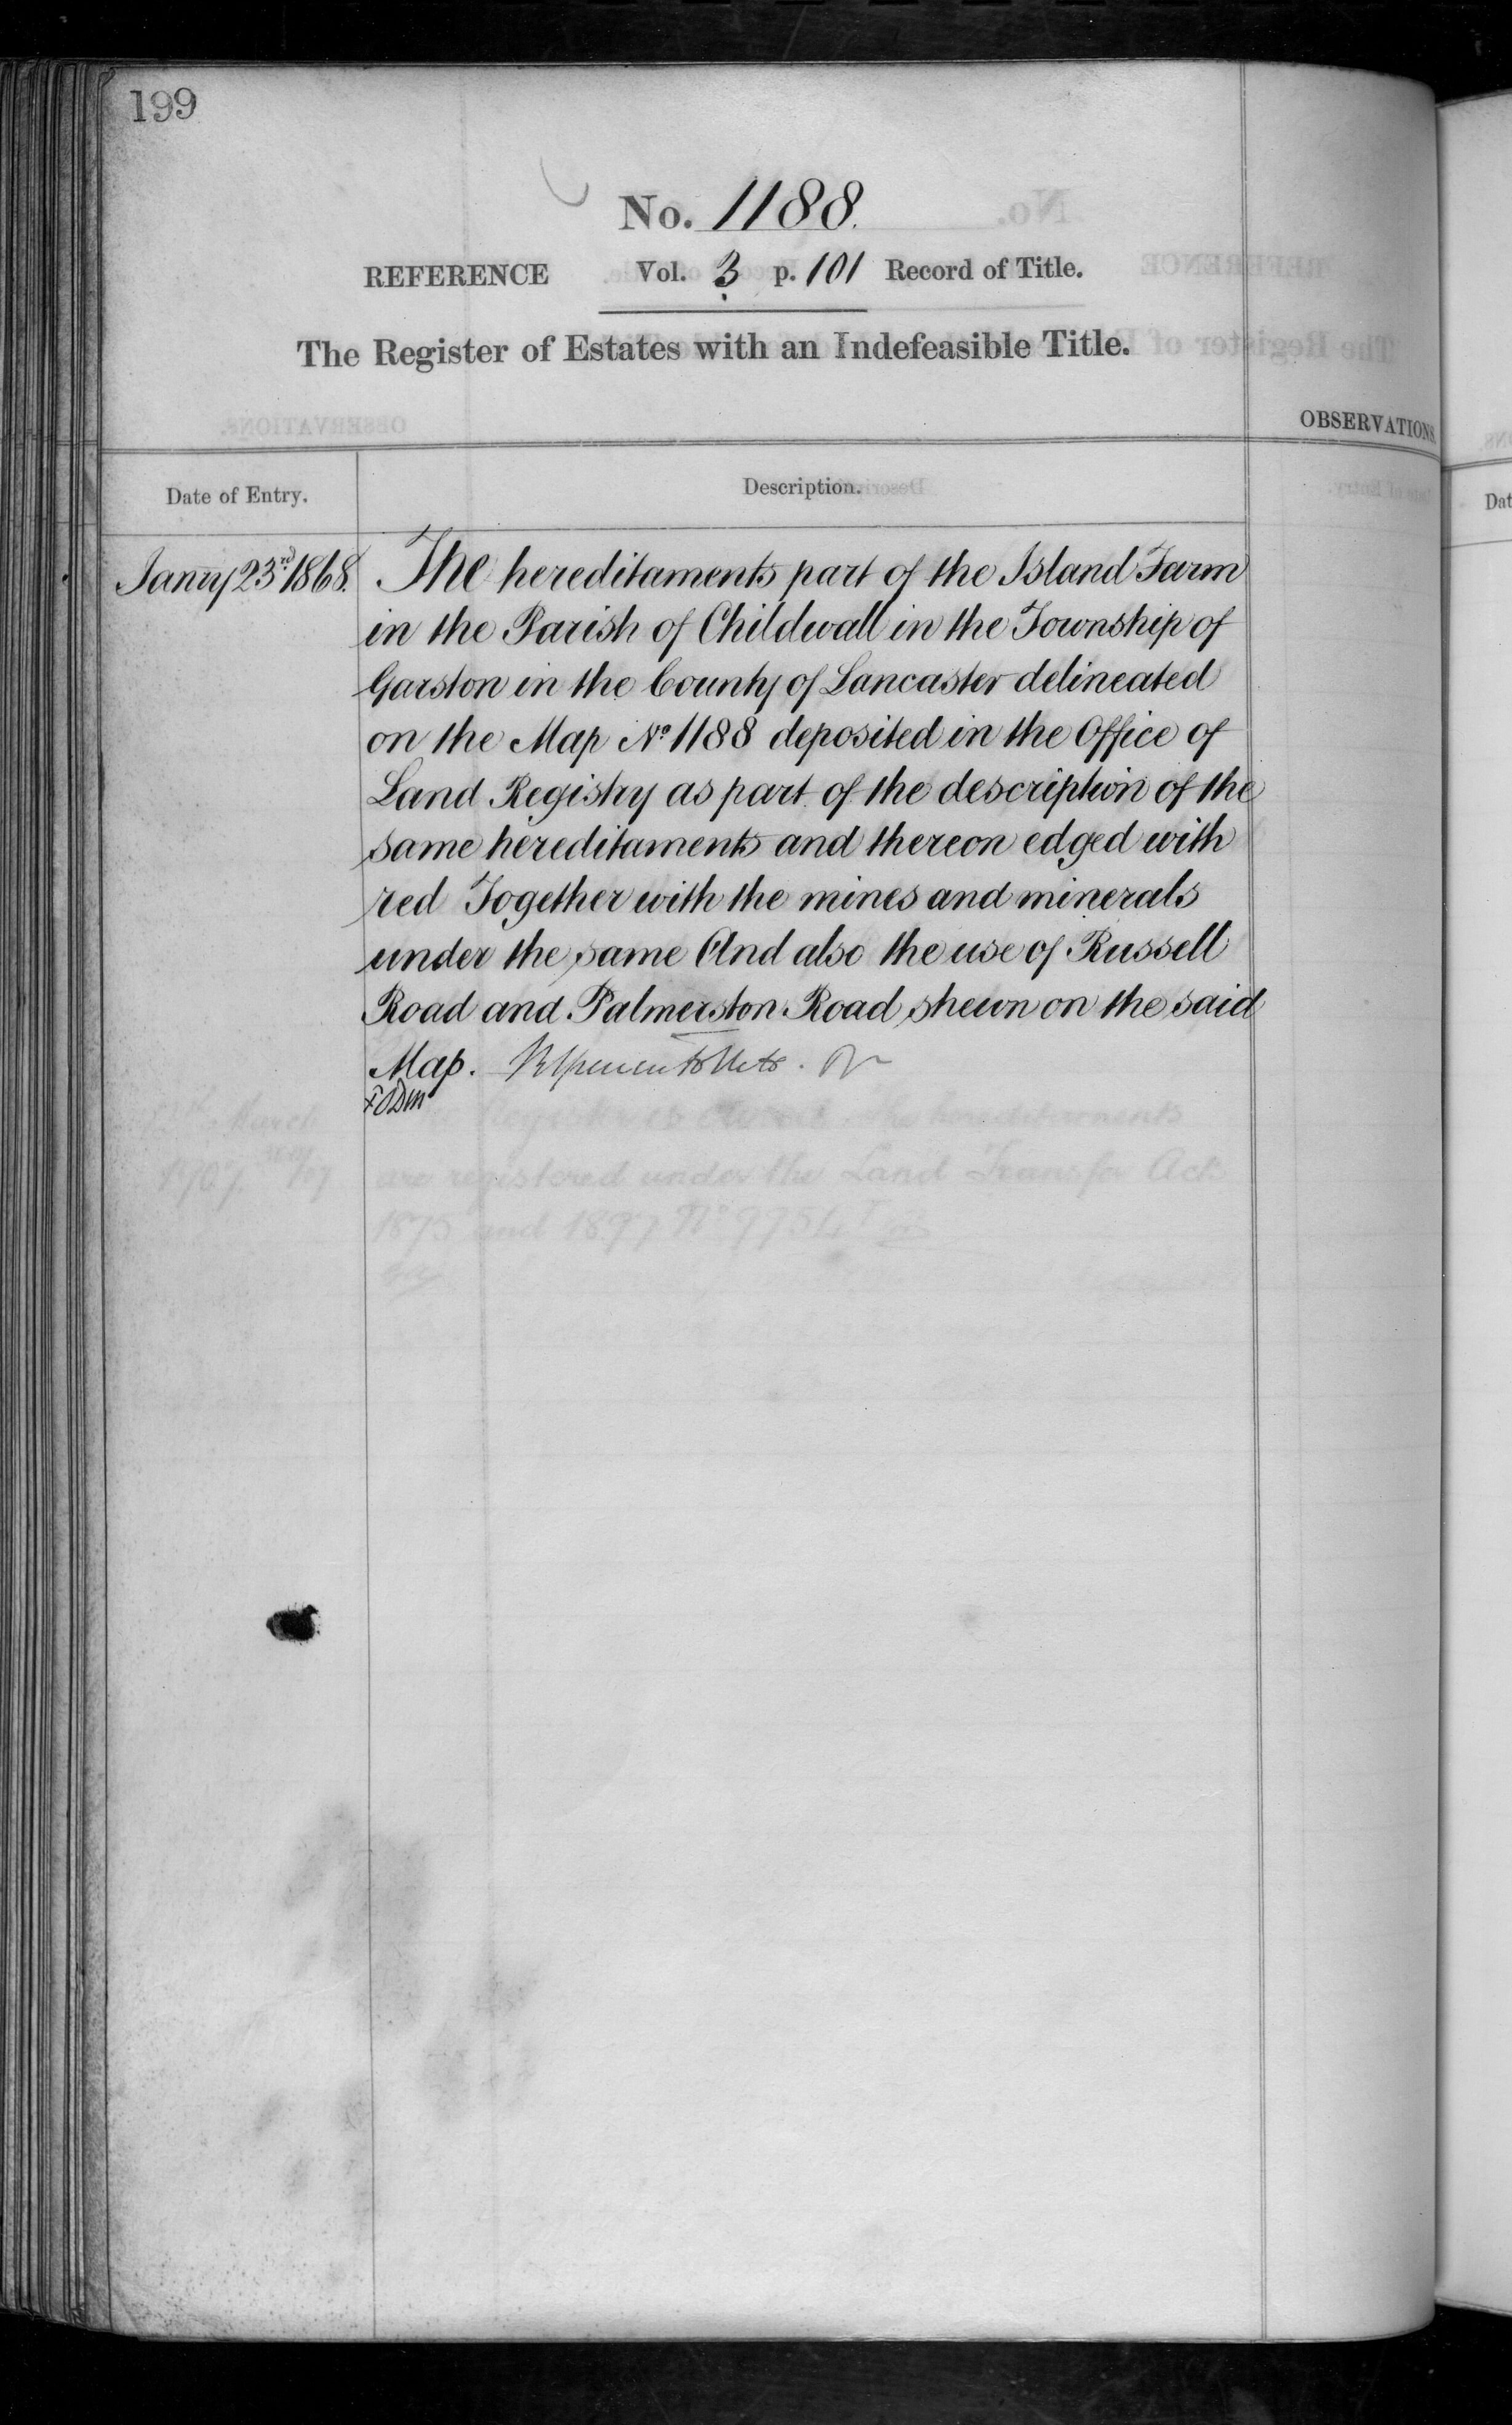 199
No. 1188.
REFERENCE Vol. 3 p. 101 Record of Title.
The Register of Estates with an Indefeasible Title.
OBSERVATIONS
Date of Entry.
Description.
Janry 23rd 1868. The hereditaments part of the Island Farm
in the Parish of Childwall in the Township of
Garston in the County of Lancaster delineated
on the Map No 1188 deposited in the Office of
Land Registry as part of the description of the
same hereditaments and thereon edged with
red Together with the mines and minerals
under the same And also the use of Russell
Road and Palmerston Road shewn on the said
Map.
March Register is closed the hereditaments
1907 are registered under the Land Transfer Acts
1875 and 1897 No
Dat